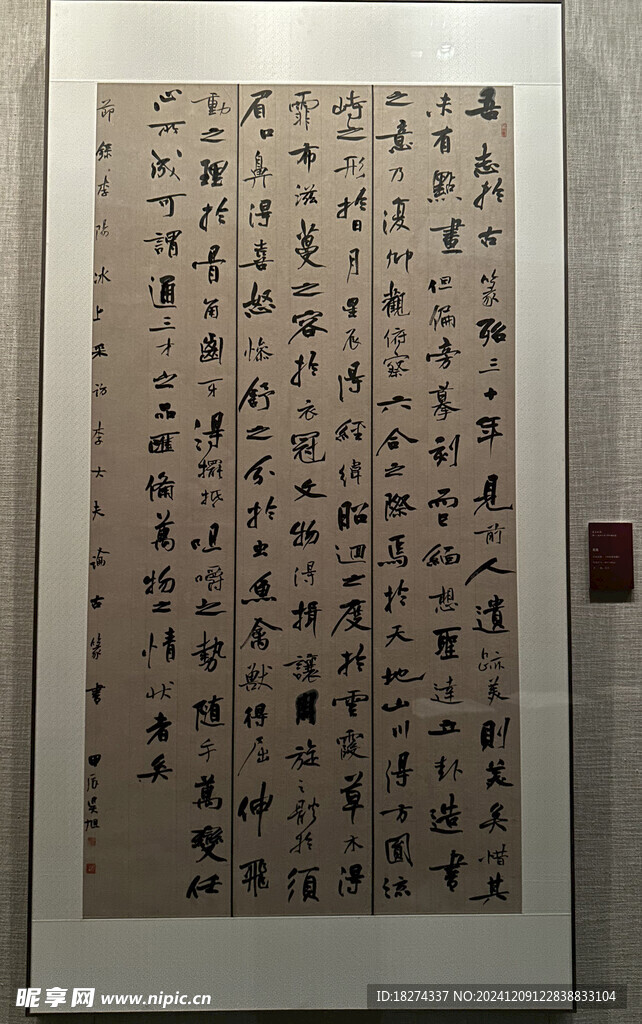 吾志於古篆殆三十年見前人遺跡美則美矣惜其
未有點畫但偏旁摹刻而已緬想聖達立卦造書
之意乃復仰觀俯察六合之際焉於天地山川得方圓流
峙之形於日月星辰得經緯昭迴之度於雲霞草木得
霏布滋蔓之容於衣冠文物得揖讓周旋之體於須
眉口鼻得喜怒慘舒之分於虫魚禽獸得屈伸飛
動之理於骨角齒牙得擺抵咀嚼之勢随手萬變任
心所成可謂通三才之品匯備萬物之情狀者矣
節錄李陽冰上采訪李大夫論古篆書
甲辰吳旭
昵享网 www.nipic.cn
ID:18274337 NO:20241209122838833104